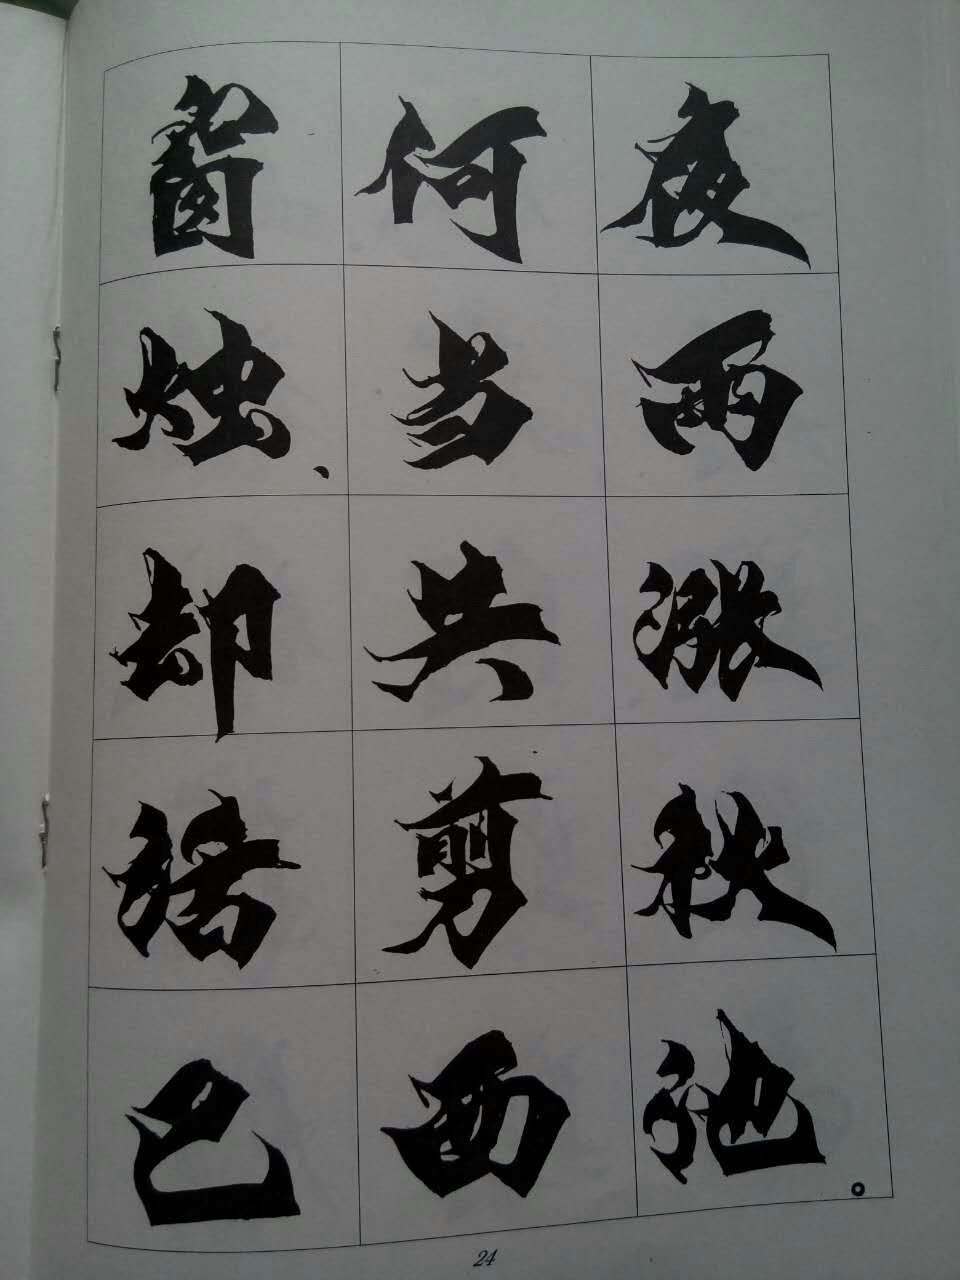 夜雨涨秋池。
何当共剪西
窗烛、却话巴
24